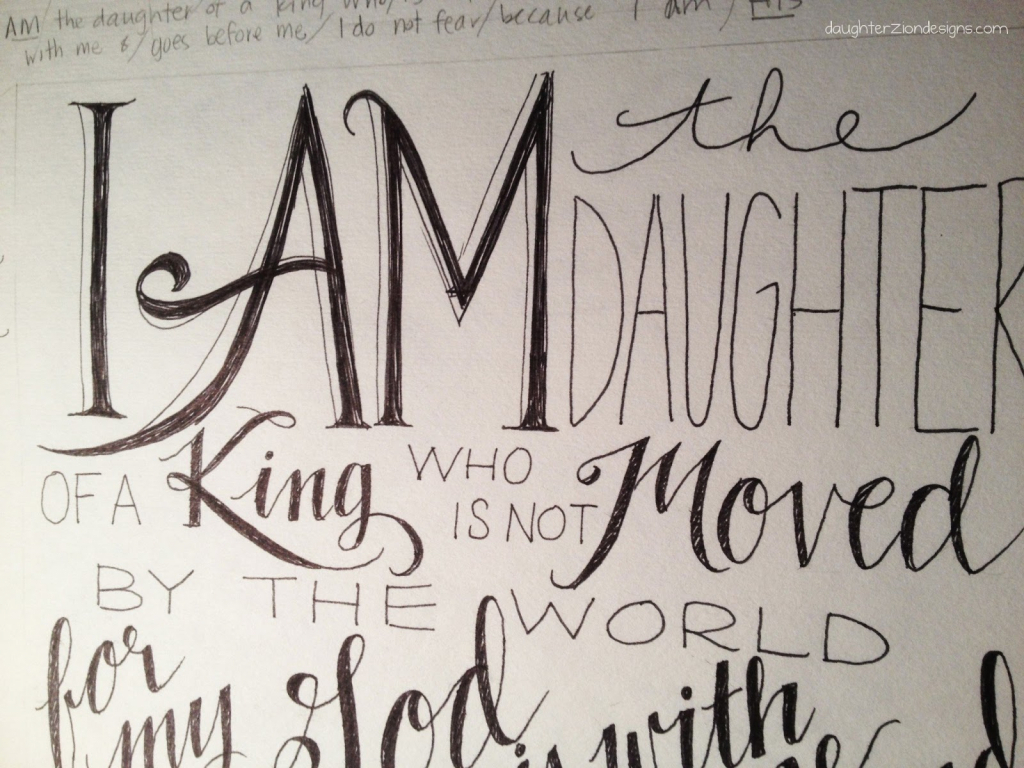 AM / the daughter / of a king who /
with me & / goes before me, / I do not fear / because I am / HIS
daughterZiondesigns.com
I AM the
DAUGHTER
OF A King WHO IS NOT Moved
BY THE WORLD
for my God is with